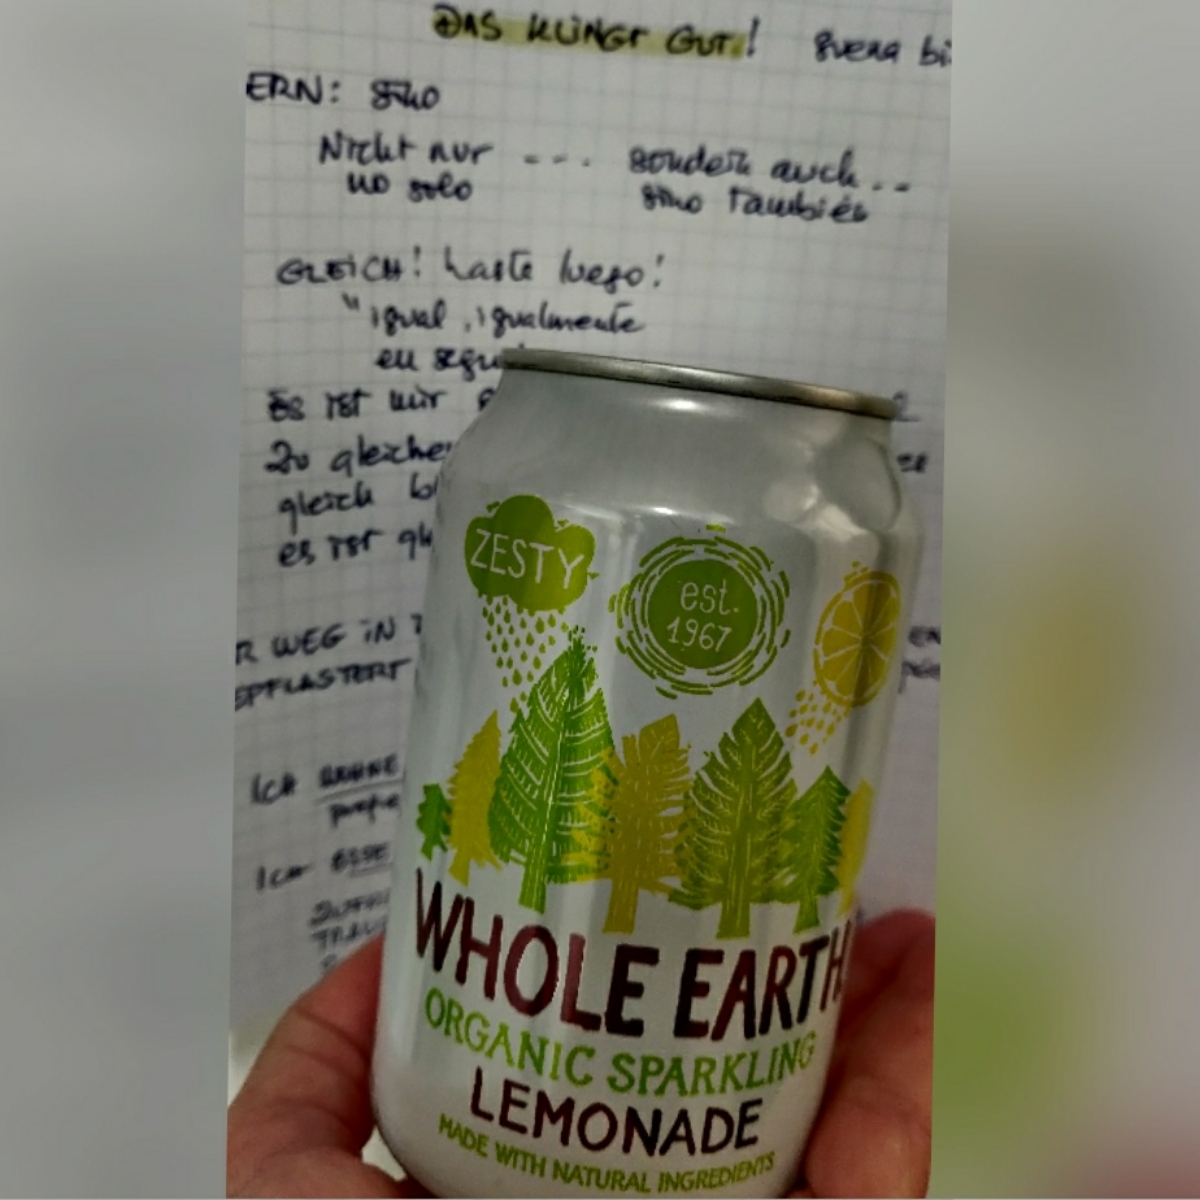 DAS KLINGT GUT! suena bi
ERN: sino
Nicht nur --- sondern auch..
no solo sino también
GLEICH! hasta luego!
" igual, igualmente
en segu
Es ist mir
Zu gleiche
gleich bl
es ist gl
R WEG IN
EPFLASTERT
Ich
Ich ESSE
ZESTY
est.
1967
WHOLE EARTH
ORGANIC SPARKLING
LEMONADE
MADE WITH NATURAL INGREDIENTS